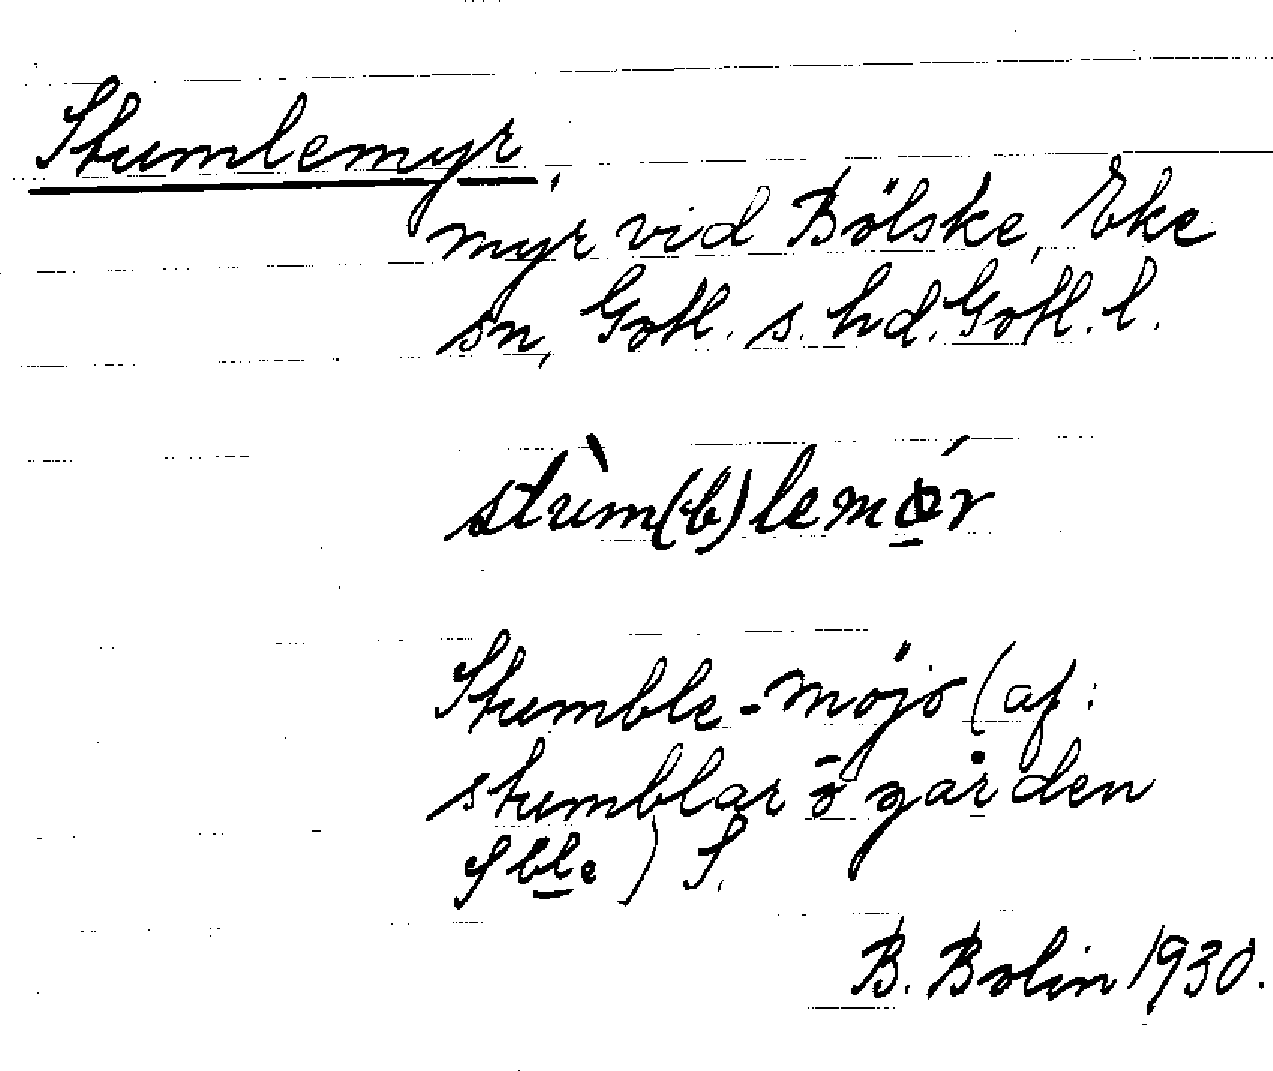 Stumlemyr,
myr vid Bölske, Eke
sn, Gotl. s. hd. Gotl. l.
stùm(b)lemǿr
Stumble-möjr (af:
stumblar ō gården
) S.
B. Bolin 1930.